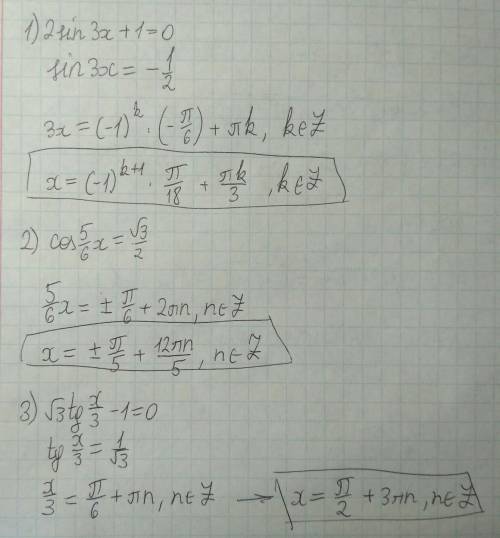 1) 2 sin 3x + 1 = 0
sin 3x = -1/2
3x = (-1)^k · (-π/6) + πk, k ∈ Z
x = (-1)^(k+1) · π/18 + πk/3, k ∈ Z
2) cos 5/6 x = √3/2
5/6 x = ± π/6 + 2πn, n ∈ Z
x = ± π/5 + 12πn/5, n ∈ Z
3) √3 tg x/3 - 1 = 0
tg x/3 = 1/√3
x/3 = π/6 + πn, n ∈ Z → x = π/2 + 3πn, n ∈ Z